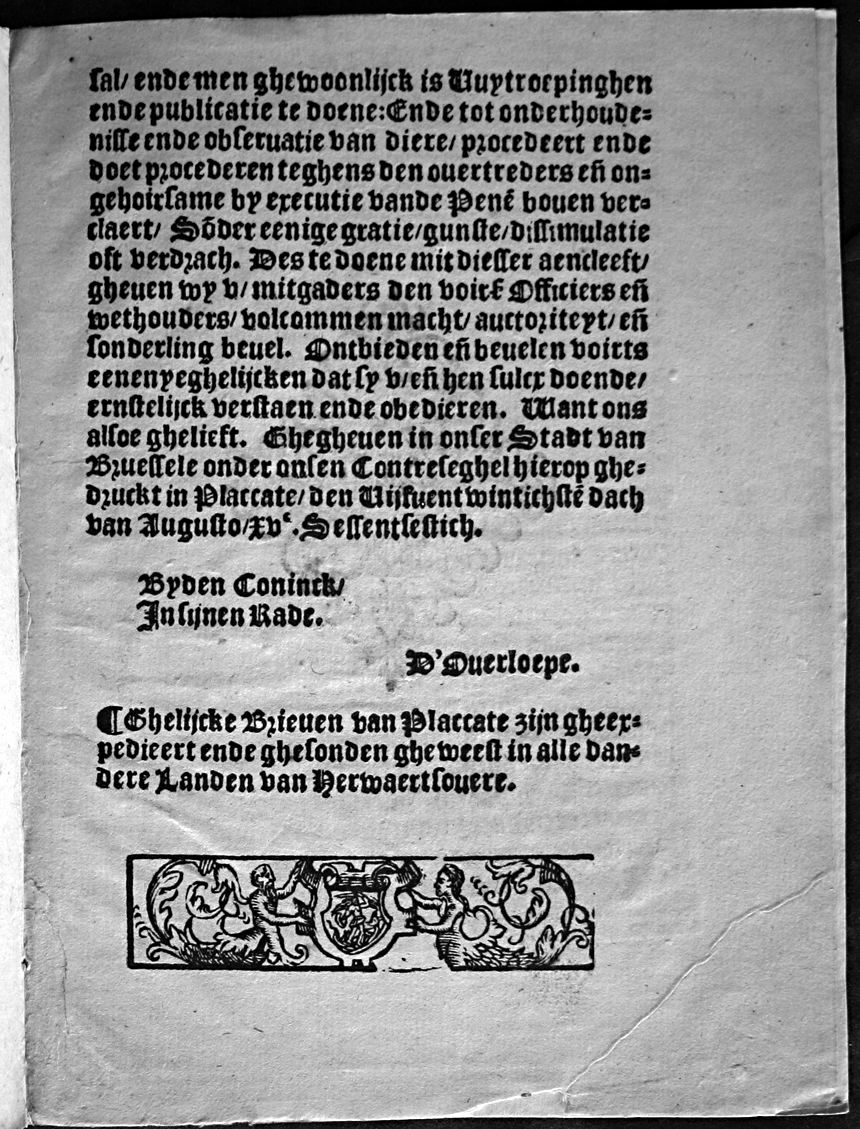 sal/ ende men ghewoonlijck is Uuytroepinghen
ende publicatie te doene: Ende tot onderhoude⸗
nisse ende obseruatie van diere/ procedeert ende
doet procederen teghens den ouertreders eñ on⸗
gehoirsame by executie vande Penē bouen ver⸗
claert/ Sōder eenige gratie/ gunste/ dissimulatie
oft verdrach. Des te doene mit diesser aencleeft/
gheuen wy v/ mitgaders den voirs̄ Officiers eñ
wethouders/ volcommen macht/ auctoriteyt/ eñ
sonderling beuel. Ontbieden eñ beuelen voirts
eenenyeghelijcken dat sy v/ eñ hen sulcx doende/
ernstelijck verstaen ende obedieren. Want ons
alsoe ghelieft. Ghegheuen in onser Stadt van
Bruessele onder onsen Contreseghel hierop ghe⸗
druckt in Placcate/ den Uijfuentwintichstē dach
van Augusto/ xvᶜ. Sessentsestich.
Byden Coninck/
In sijnen Rade.
D'Ouerloepe.
¶Ghelijcke Brieuen van Placcate zijn gheex⸗
pedieert ende ghesonden gheweest in alle dan⸗
dere Landen van Herwaertsouere.